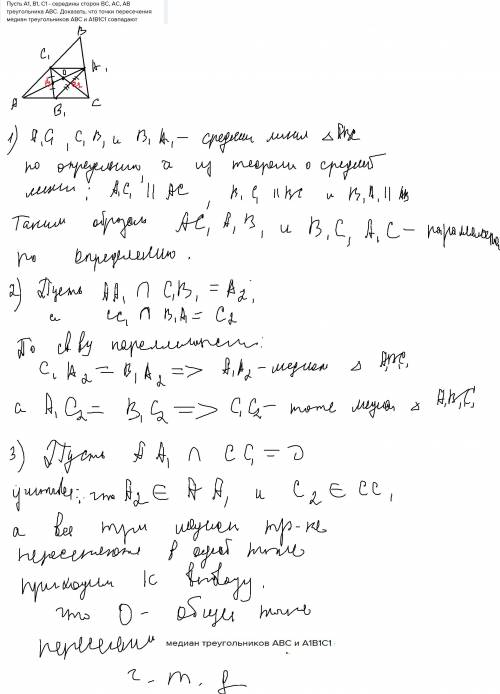 Пусть A1, B1, C1 - середины сторон BC, AC, AB
треугольника ABC. Доказать, что точки пересечения
медиан треугольников ABC и A1B1C1 совпадают
B
C₁
A₁
O
A
B₁
C
1) A₁C₁, C₁B₁ и B₁A₁ – средние линии △ABC
по определению, а из теоремы о средней
линии: A₁C₁ || AC, B₁C₁ || BC и B₁A₁ || AB
Таким образом AC₁A₁B₁ и B₁C₁A₁C –
по определению.
2) Пусть AA₁ ∩ C₁B₁ = A₂;
а CC₁ ∩ B₁A₁ = C₂
По св-ву
C₁A₂ = B₁A₂ => A₁A₂ – медиана △ A₁B₁C₁
а A₁C₂ = B₁C₂ => C₁C₂ – тоже медиана △ A₁B₁C₁
3) Пусть AA₁ ∩ CC₁ = O
что A₂ ∈ AA₁ и C₂ ∈ CC₁
а все три медианы тр-ка
пересекаются в одной точке
приходим к выводу.
что O – общая точка
пересечения медиан треугольников ABC и A1B1C1
ч-т-д